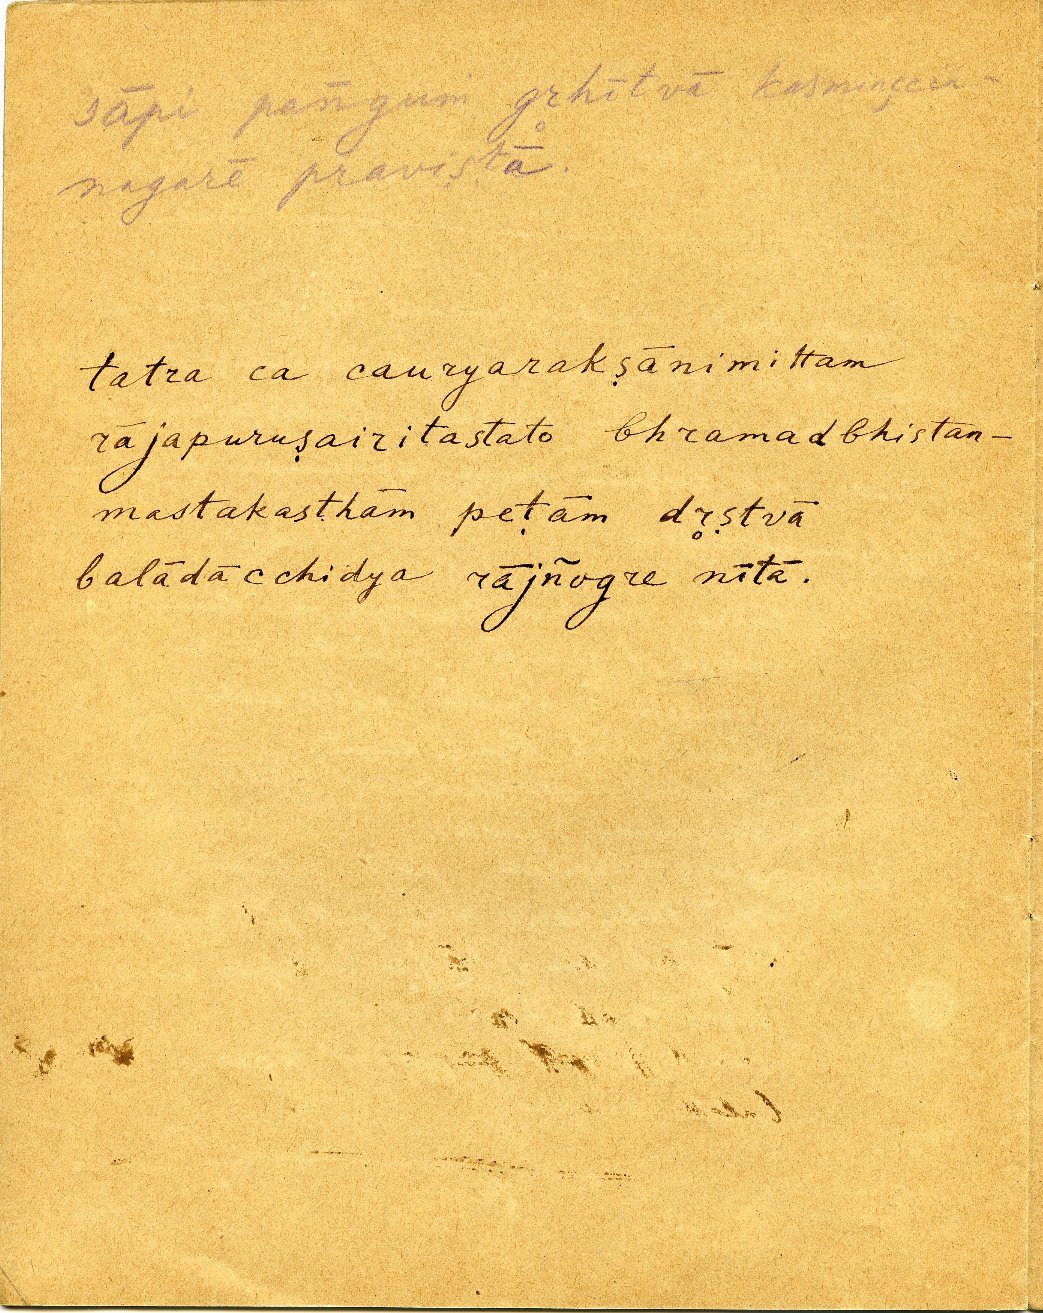 sāpi pañgum gr̥hītvā kasminçcin-
nagarē praviṣṭā.
tatra ca cauryarakṣānimittam
rājapuruṣairitastato bhramadbhistan-
mastakasṭhām peṭām dr̥ṣtvā
balādācchidya rājñogre nītā.